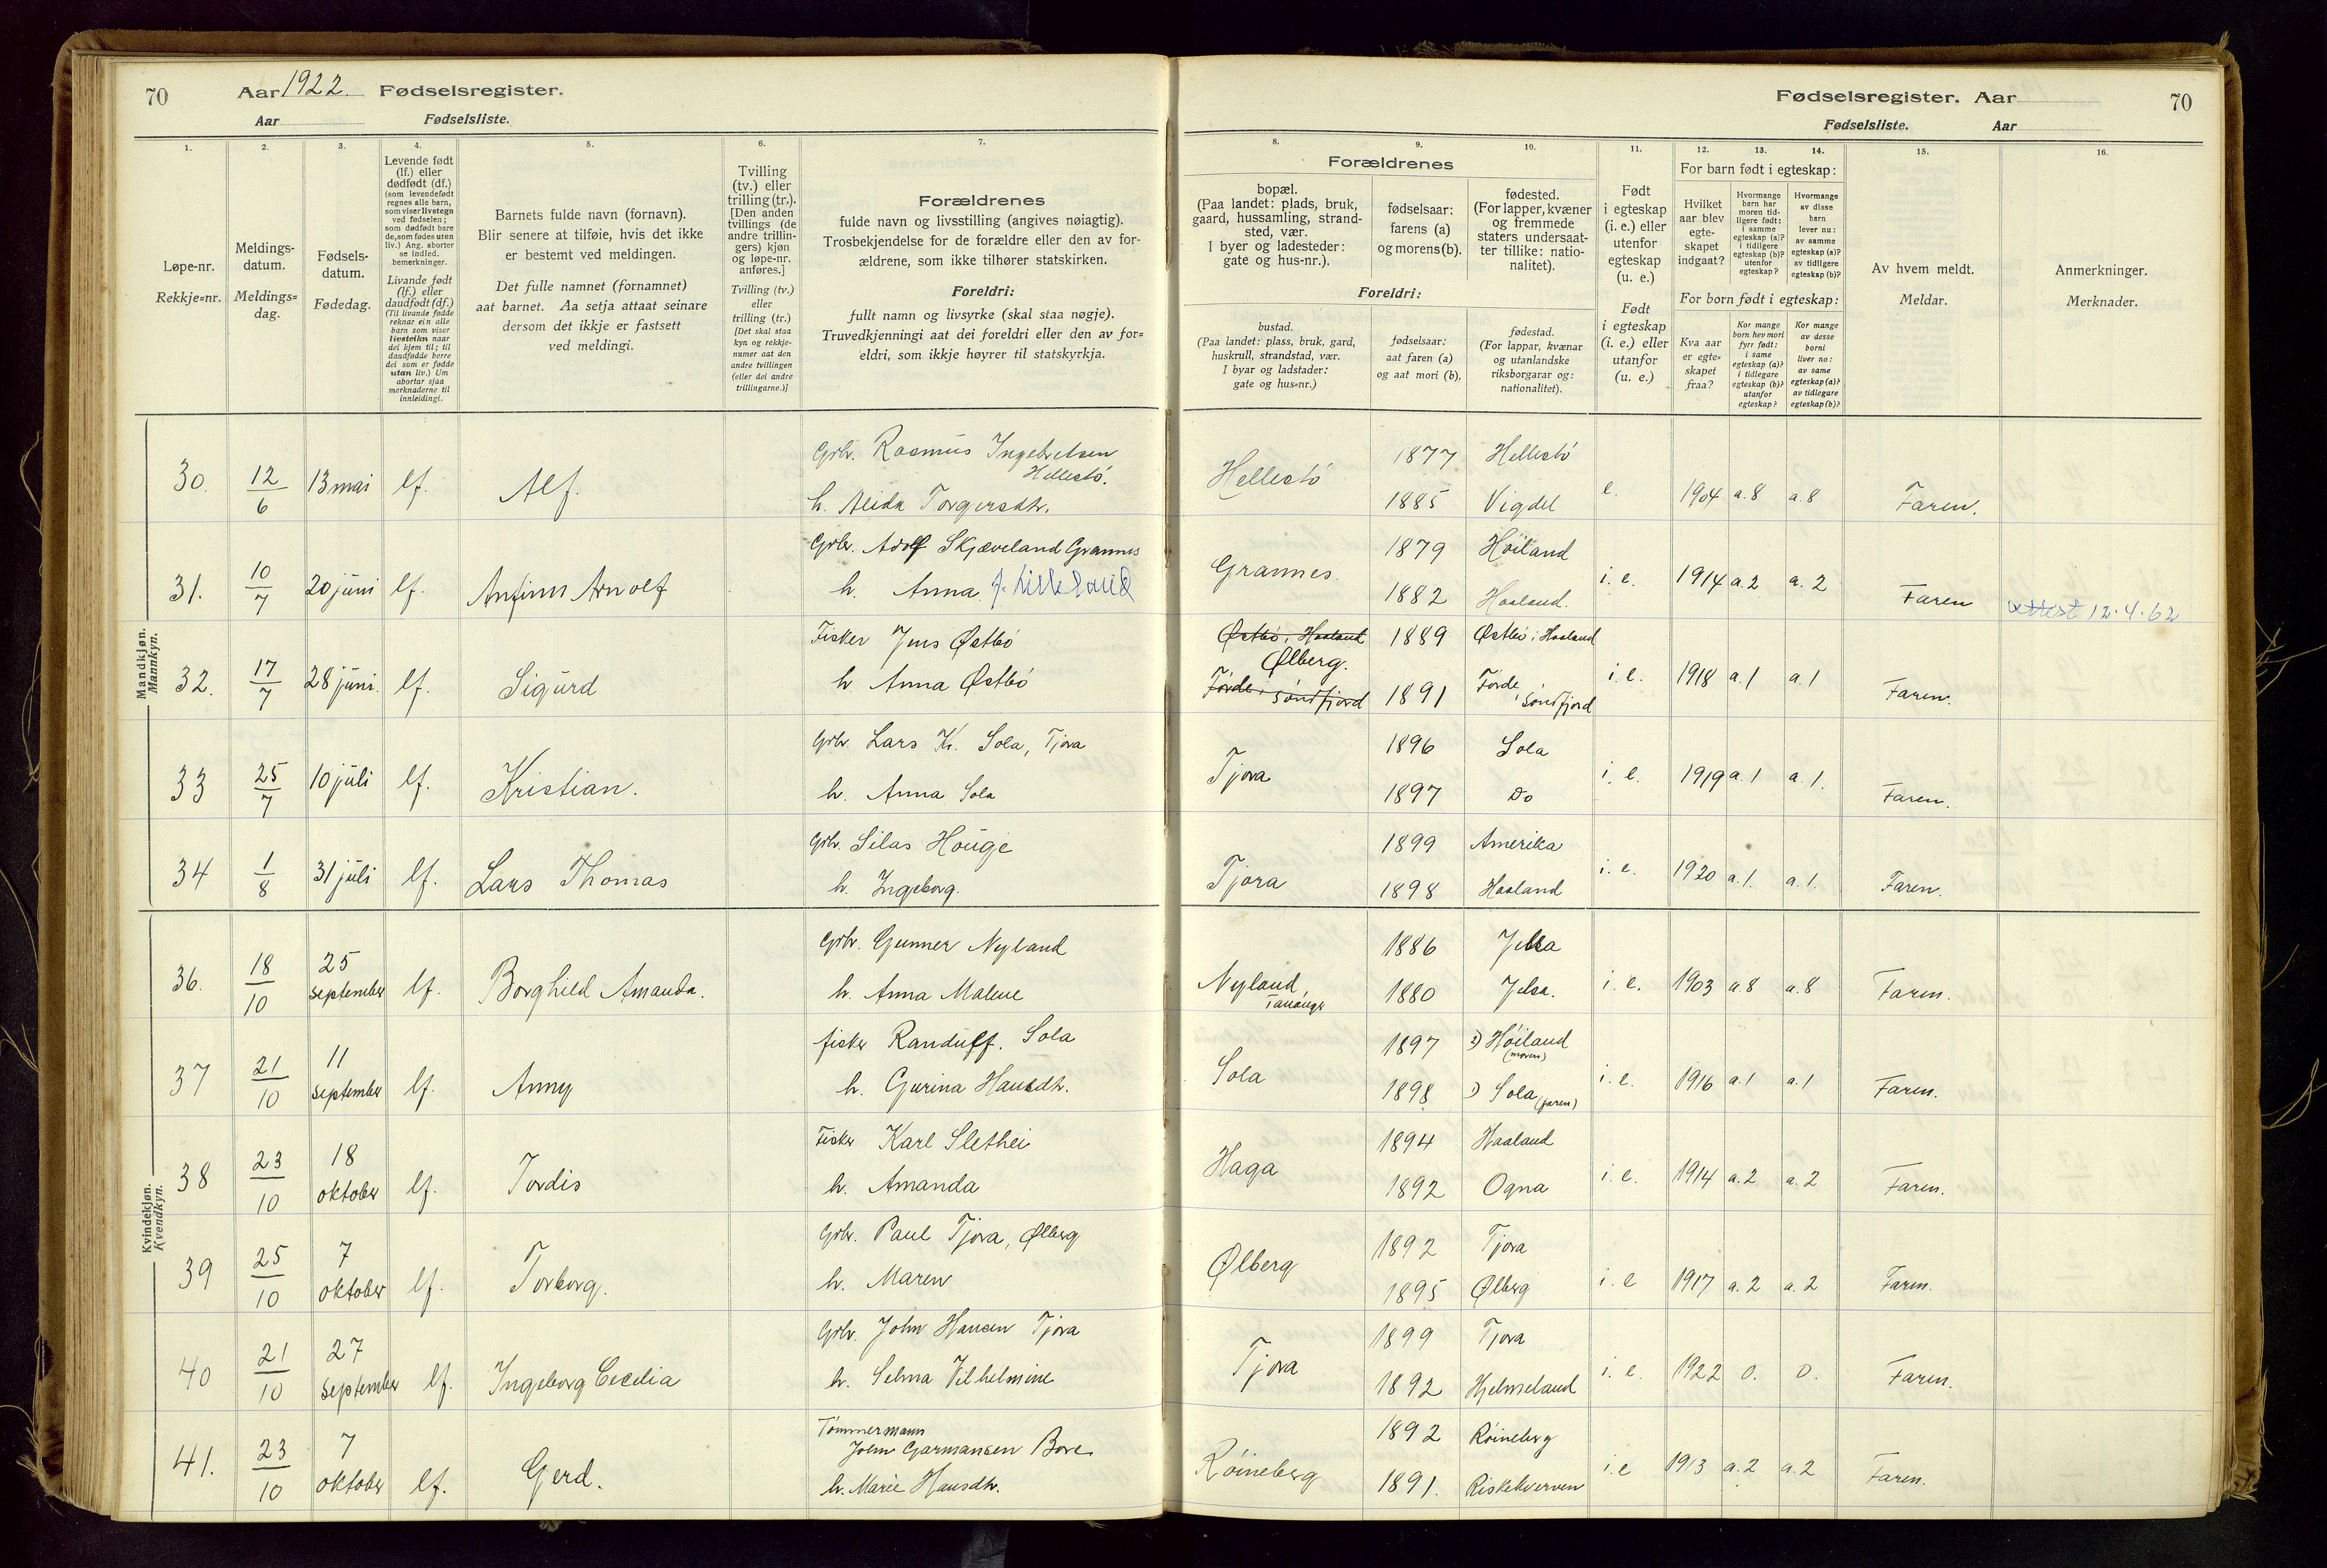 70 Aar 1922. Fødselsregister.
Aar Fødselsliste.
Fødselsregister. Aar 70
Fødselsliste. Aar
1. 2. 3. 4. 5. 6. 7. 8. 9. 10. 11. 12. 13. 14. 15. 16.
Løpe-nr.
Rekkje=nr.
Meldings-
datum.
Meldings=
dag.
Fødsels-
datum.
Fødedag.
Levende født
(lf.) eller
dødfødt (df.)
(som levendefødt
regnes alle barn,
som viser livstegn
ved fødselen;
som dødfødt bare
de, som fødes uten
liv.) Ang. aborter
se indled.
bemerkninger.
Livande født
(lf.) eller
daudfødt (df.)
(Til livande fødde
reknar ein alle
barn som viser
livsteikn naar
dei kjem til; til
daudfødde berre
dei som er fødde
utan liv.) Um
abortar sjaa
merknaderne til
innleidingi.
Barnets fulde navn (fornavn).
Blir senere at tilføie, hvis det ikke
er bestemt ved meldingen.
Det fulle namnet (fornamnet)
aat barnet. Aa setja attaat seinare
dersom det ikkje er fastsett
ved meldingi.
Tvilling
(tv.) eller
trilling (tr.).
[Den anden
tvillings (de
andre trillin-
gers) kjøn
og løpe-nr.
anføres.]
Tvilling (tv.)
eller
trilling (tr.)
[Det skal staa
kyn og rekkje-
numer aat den
andre tvillingen
(eller dei andre
trillingarne.)]
Forældrenes
fulde navn og livsstilling (angives nøiagtig).
Trosbekjendelse for de forældre eller den av for-
ældrene, som ikke tilhører statskirken.
Foreldri:
fullt namn og livsyrke (skal staa nøgje).
Truvedkjenningi aat dei foreldri eller den av for=
eldri, som ikkje høyrer til statskyrkja.
Forældrenes
bopæl.
(Paa landet: plads, bruk,
gaard, hussamling, strand-
sted, vær.
I byer og ladesteder:
gate og hus-nr.).
fødselsaar:
farens (a)
og morens (b).
fødested.
(For lapper, kvæner
og fremmede
staters undersaat-
ter tillike: natio-
nalitet).
Foreldri:
bustad.
(Paa landet: plass, bruk, gard,
huskrull, strandstad, vær.
I byar og ladstader:
gate og hus=nr.)
fødselsaar:
aat faren (a)
og aat mori (b).
fødestad.
(For lappar, kvænar
og utanlandske
riksborgarar og:
nationalitet).
Født
i egteskap
(i. e.) eller
utenfor
egteskap
(u. e.)
Født
i egteskap
(i. e.) eller
utanfor
(u. e.)
For barn født i egteskap:
Hvilket
aar blev
egte-
skapet
indgaat?
Hvormange
barn har
moren tid-
ligere født:
i samme
egteskap (a)?
i tidligere
egteskap (b)?
utenfor
egteskap?
Hvormange
av disse
barn
lever nu:
av samme
egteskap (a)?
av tidligere
egteskap (b)?
For born født i egteskap:
Kva aar
er egte=
skapet
fraa?
Kor mange
born hev mori
fyrr født:
i same
egteskap (a)?
i tidlegare
egteskap (b)?
utanfor
egteskap?
Kor mange
av desse
borni
liver no:
av same
egteskap (a)?
av tidlegare
egteskap (b)?
Av hvem meldt.
Meldar.
Anmerkninger.
Merknader.
Mandkjøn.
Mannkyn.
30. 12/6 13 mai lf. Alf. Grbr. Rasmus Ingebretsen
Hellestø. Hellestø 1877 Hellestø
h. Alida Torgersdtr. 1885 Vigdel e. 1904 a. 8 a. 8 Faren.
31. 10/7 20 juni lf. Anfinn Arnolf Grbr. Adolf Skjæveland Grannes Grannes. 1879 Høiland
h. Anna 1882 Haaland. i. e. 1914 a. 2 a. 2 Faren attest 12.4.62
32. 17/7 28 juni. lf. Sigurd Fisker Jens Østbø Østbø i Haaland 1889 Østbø i Haaland
Ølberg.
h. Anna Østbø Førde, Søndfjord 1891 Førde, Søndfjord i. e. 1918 a. 1 a. 1 Faren.
33 25/7 10 juli lf. Kristian. Grbr. Lars K. Sola, Tjora Tjora 1896 Sola
h. Anna Sola 1897 Do i. e. 1919 a. 1 a. 1. Faren.
34 1/8 31 juli lf. Lars Thomas Grbr. Silas Houge Tjora 1899 Amerika
h. Ingeborg. 1898 Haaland i. e. 1920 a. 1. a. 1. Faren.
Kvindekjøn.
Kvendkyn.
36. 18/10 25 september lf. Borghild Amanda. Grbr. Gunner Nyland Nyland, Tananger 1886 Jelsa
h. Anna Malene 1880 Jelsa. i. e. 1903 a. 8 a. 8 Faren.
37 21/10 11 september lf. Anny fisker Randulf. Sola Sola 1897 2) Høiland (moren)
h. Gurina Hansdtr. 1898 1) Sola (faren) i. e. 1916 a. 1 a. 1 Faren.
38 23/10 18 oktober lf. Tordis Fisker Karl Slethei Haga 1894 Haaland
h. Amanda 1892 Ogna i. e. 1914 a. 2 a. 2 Faren.
39 25/10 7 oktober lf. Torborg. Grbr. Paul Tjora, Ølberg Ølberg 1892 Tjora
h. Maren 1895 Ølberg i. e 1917 a. 2 a. 2 Faren.
40 21/10 27 september lf. Ingeborg Cecilia Grbr. John Hansen Tjora Tjora 1899 Tjora
h. Selma Vilhelmine 1892 Hjelmeland i. e. 1922 0. 0. Faren.
41. 23/10 7 oktober lf. Gerd. Tømmermann
John Garmansen Bore Røineberg 1892 Røineberg
h. Marie Hansdtr. 1891. Riskekverven i. e 1913 a. 2 a. 2 Faren.